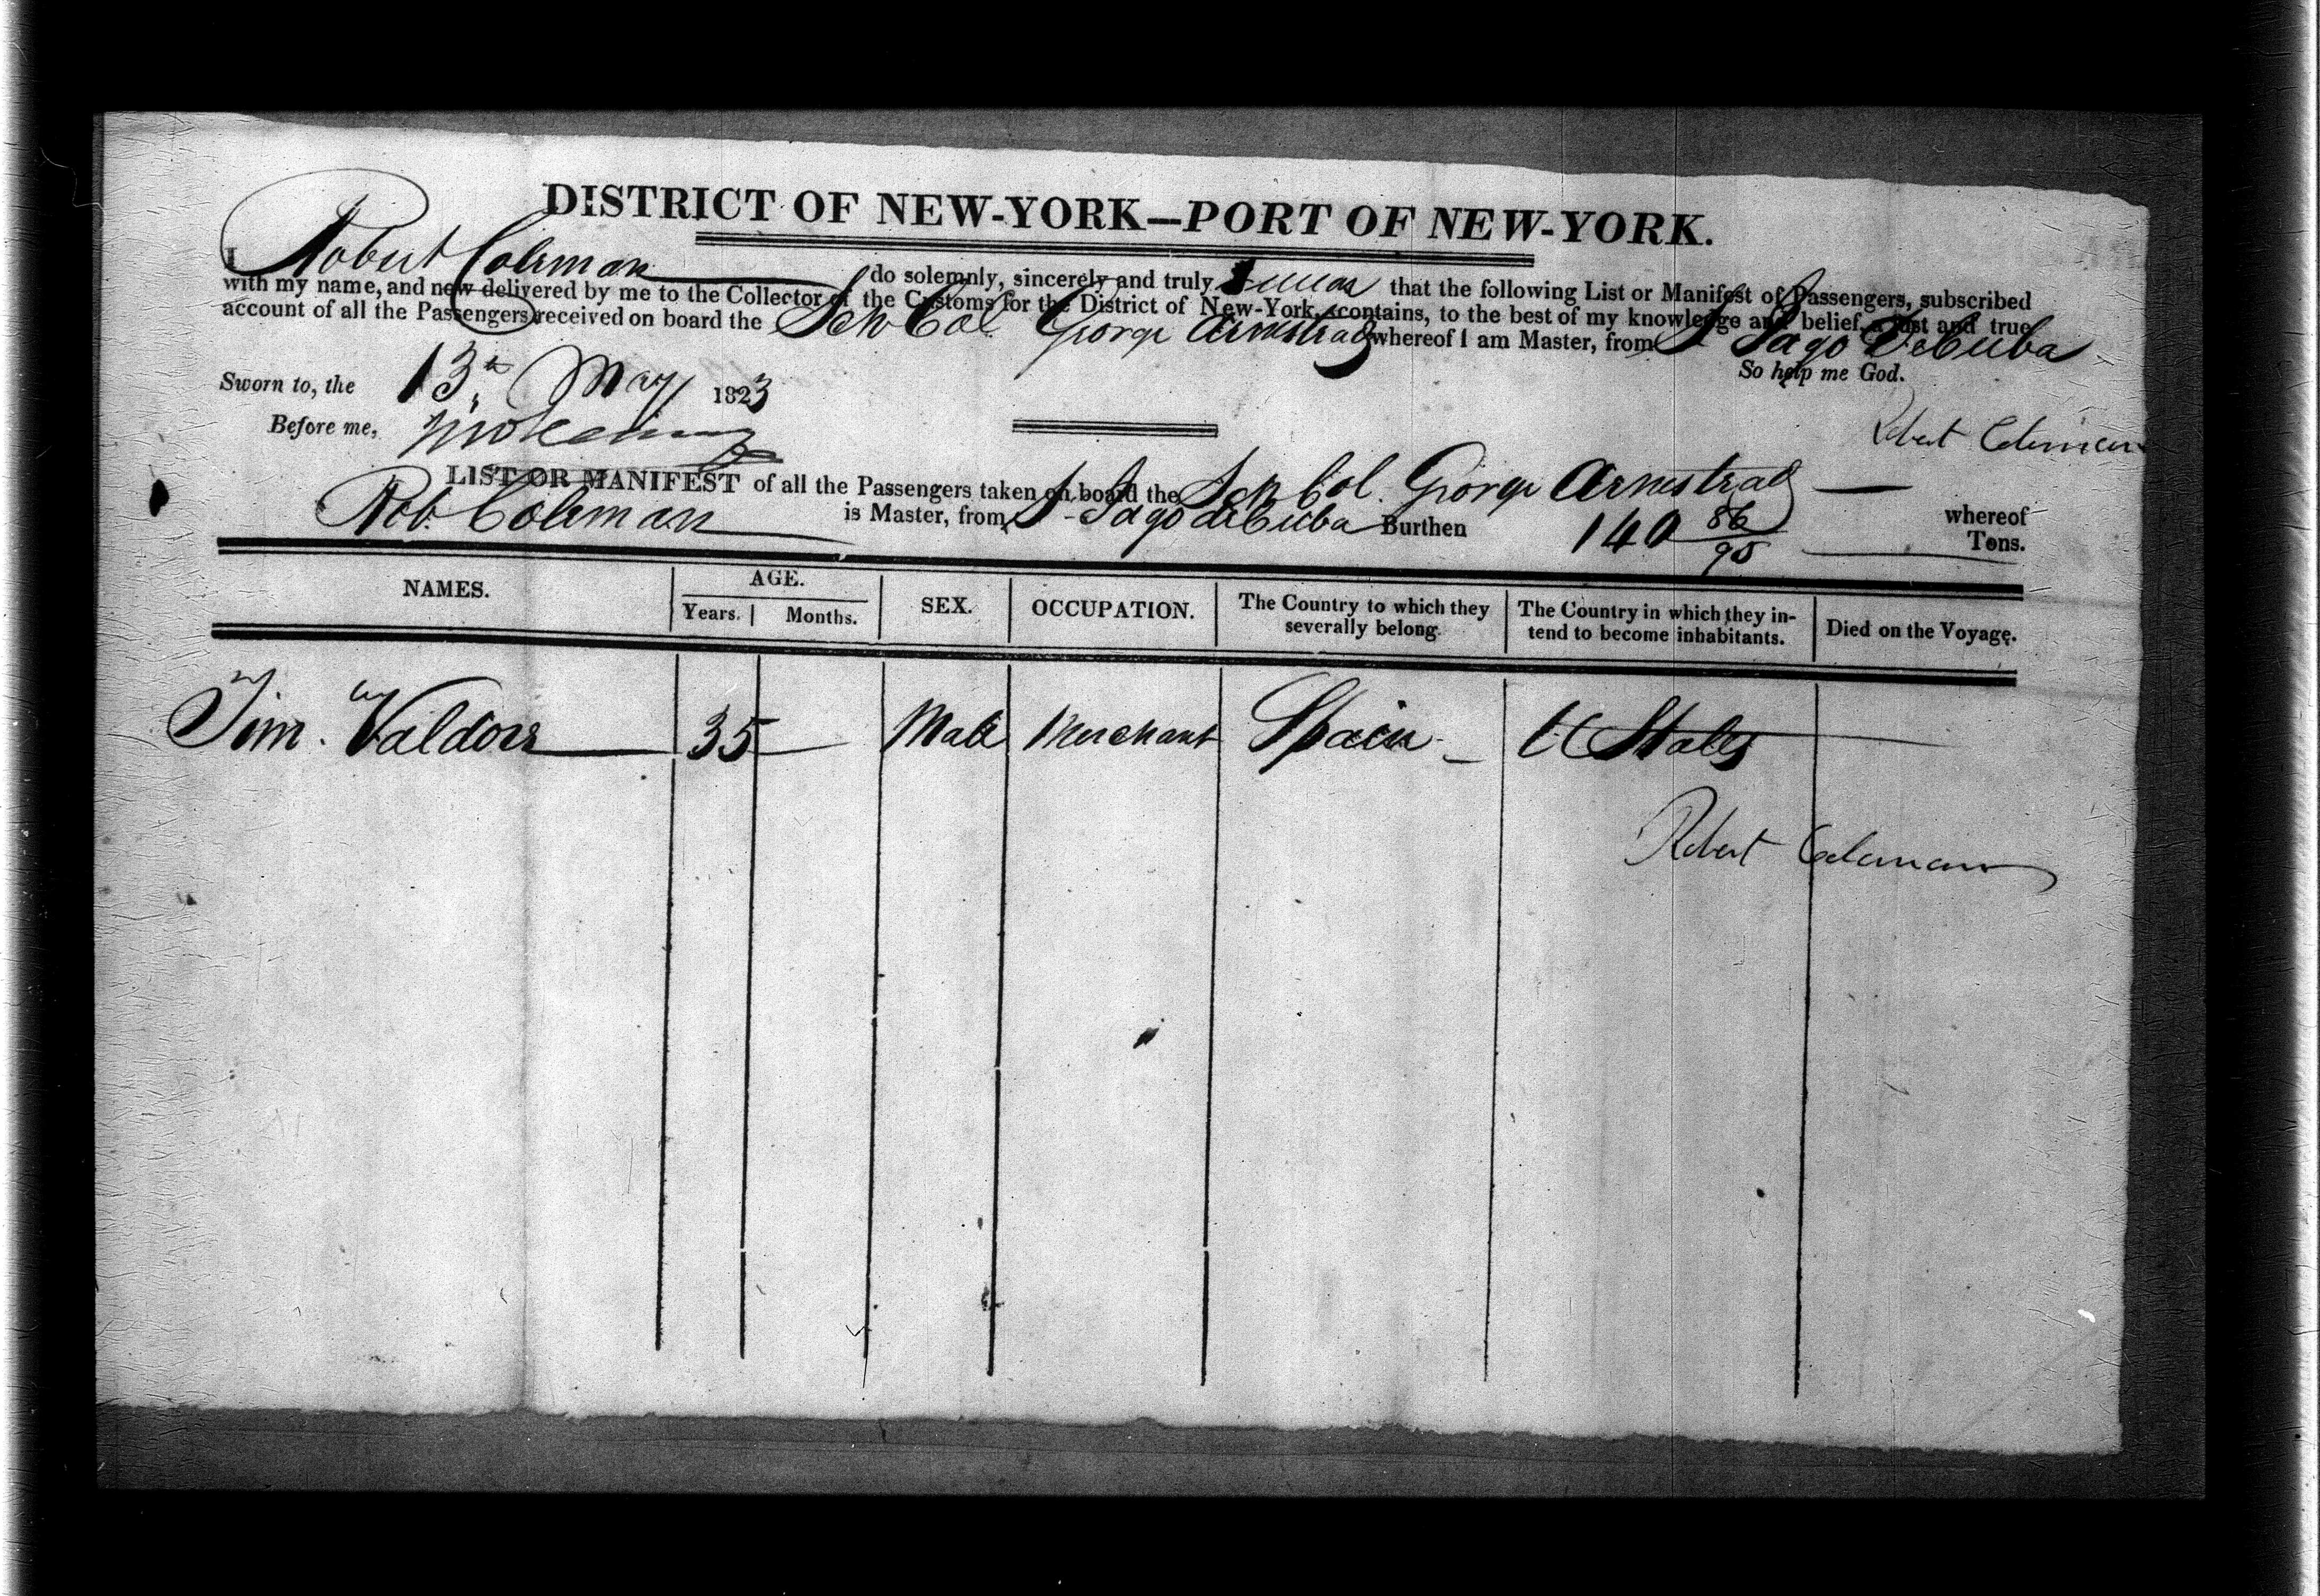 DISTRICT OF NEW-YORK—PORT OF NEW-YORK.
I Robert Coleman do solemnly, sincerely and truly swear that the following List or Manifest of Passengers, subscribed
with my name, and now delivered by me to the Collector of the Customs for the District of New-York, contains, to the best of my knowledge and belief, a just and true
account of all the Passengers received on board the Sch Col. George Armstrad whereof I am Master, from St Jago De Cuba
So help me God.
Sworn to, the 13th May 1823
Before me,
Robert Coleman
LIST OR MANIFEST of all the Passengers taken on board the Sch Col. George Armstrad whereof
Rob. Coleman is Master, from St Jago de Cuba Burthen 140 86/95 Tons.
NAMES. AGE. SEX. OCCUPATION. The Country to which they severally belong. The Country in which they in-tend to become inhabitants. Died on the Voyage.
Years. Months.
Tim. Valdors 35 Male Merchant Spain U States
Robert Coleman